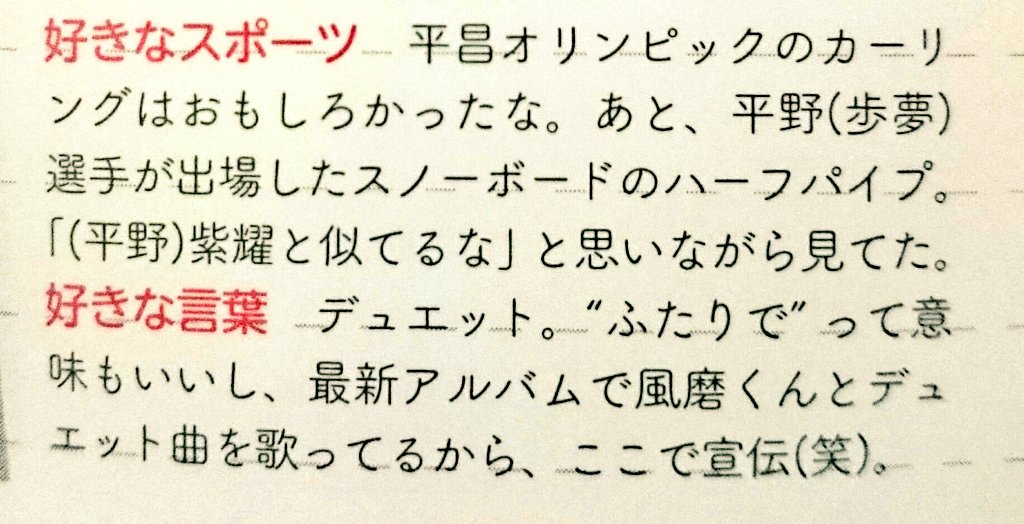 好きなスポーツ　平昌オリンピックのカーリ
ングはおもしろかったな。あと、平野(歩夢)
選手が出場したスノーボードのハーフパイプ。
「(平野)紫耀と似てるな」と思いながら見てた。
好きな言葉　デュエット。“ふたりで”って意
味もいいし、最新アルバムで風磨くんとデュ
エット曲を歌ってるから、ここで宣伝(笑)。